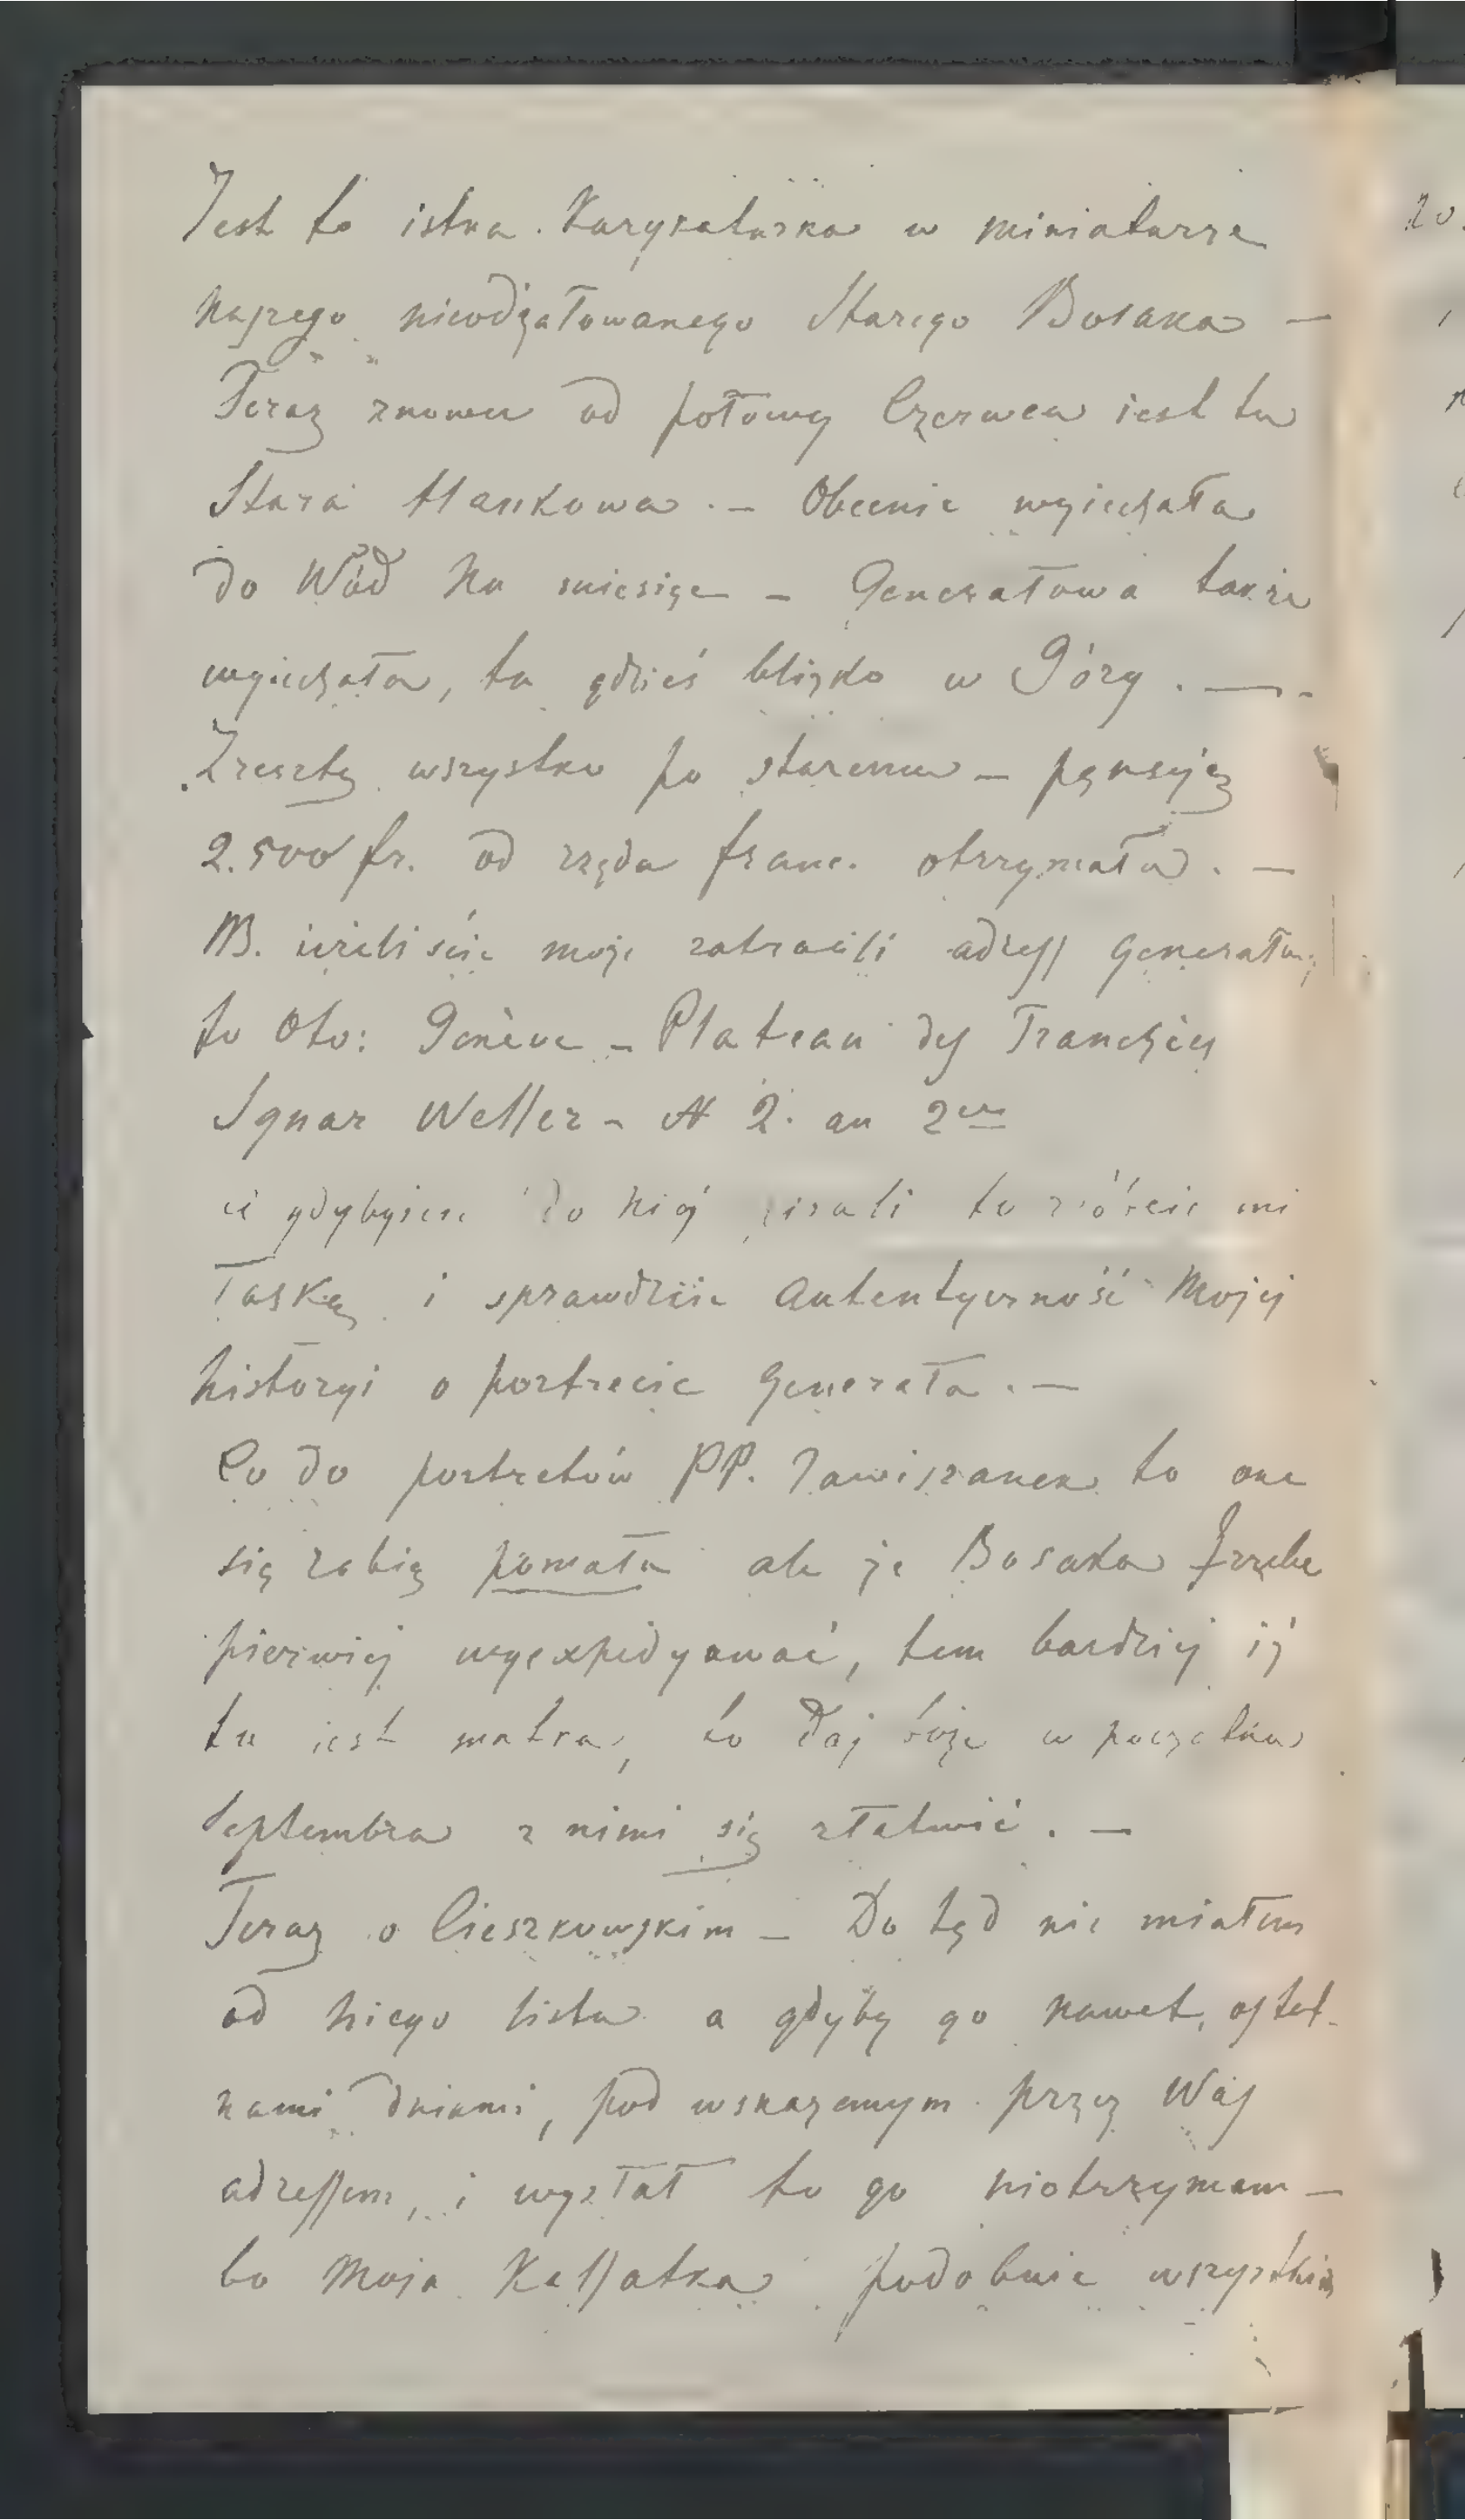 Jest to istna Karykaturka w miniaturze
naszego nieodżałowanego Starego Bosaka —
Teraz znowu od połowy Czerwca iest tu
Stara Haukowa. — Obecnie wyiechała
do Wód na miesiąc — Generałowa także
wyiechała, tu gdzieś blizko w Góry. —
Zresztą wszystko po staremu — pensyję
2.500 fr. od rządu franc. otrzymała. —
NB. ieżeliście może zatracili adress Generałow.
to Oto: Genève — Plateau des Tranchées
Ignaz Weller — N 2. au 2er
i gdybyście do niéj pisali to zróbcie mi
łaskę i sprawdźcie autentyczność Mojej
historyi o portrecie Generała. —
Co do portretów PP. Zawiszanek to one
się robią pomału ale że Bosaka trzeba
pierwiej wyexpedyować, tem bardziej iż
tu iest matka, to Daj boże w początku
Septembra z nimi się załatwić. —
Teraz o Cieszkowskim — Do tąd nie miałem
od niego listu a gdyby go nawet, ostat-
nami dniami, pod wskazanym przez Was
adressem, i wysłał to go nieotrzymam —
bo Moja Kassatka podobnie wszystkim